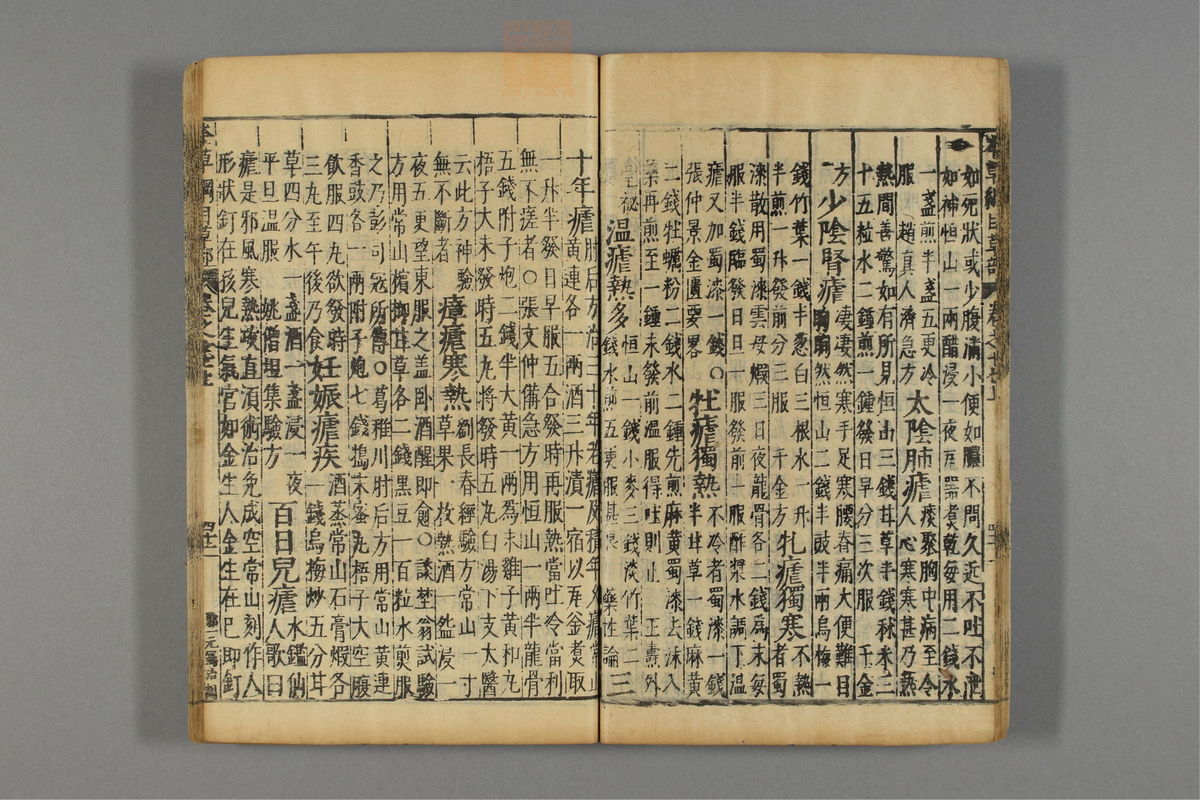 如死狀或少腹滿小便如膿不問久近不吐不泄
如神恒山一兩醋浸一夜瓦器煮乾每用二錢水
一盞煎半盞五更冷
服 趙真人濟急方 太陰肺瘧痰聚胸中病至令人心寒寒甚乃熱
熱間善驚如有所見恒山三錢甘草半錢秫米三
十五粒水二鍾煎一鍾發日早分三次服 千金
方 少陰腎瘧凄凄然寒手足寒腰脊痛大便難目
眴眴然恒山二錢半豉半兩烏梅一
錢竹葉一錢半葱白三根水一升
半煎一升發前分三服 千金方 牝瘧獨寒不熱者蜀
漆散用蜀漆雲母煅三日夜龍骨各二錢爲末每
服半錢臨發日旦一服發前一服酢漿水調下溫
瘧又加蜀漆一錢○
張仲景金匱要畧 牡瘧獨熱不冷者蜀漆一錢
半甘草一錢麻黃
二錢牡蠣粉二錢水二鍾先煎麻黃蜀漆去沫入
藥再煎至一鍾未發前溫服得吐則止 王燾外
臺秘 溫瘧熱多恒山一錢小麥三錢淡竹葉二
錢水煎五更服甚良 藥性論 三
十年瘧肘后方治三十年老瘧及積年久瘧常山
黃連各一兩酒三升漬一宿以瓦釜煮取
一升半發日早服五合發時再服熱當吐冷當利
無不瘥者○張文仲備急方用恒山一兩半龍骨
五錢附子炮二錢半大黃一兩爲末雞子黃和丸
梧子大未發時五丸將發時五丸白湯下支太醫
云此方神驗
無不斷者 瘴瘧寒熱劉長春經驗方常山一寸
草果一枚熱酒一盌浸一
夜五更望東服之盖卧酒醒即愈○談埜翁試驗
方用常山檳榔甘草各二錢黑豆一百粒水煎服
之乃彭司寇所傳○葛稚川肘后方用常山黃連
香豉各一兩附子炮七錢搗末蜜丸梧子大空腹
飲服四丸欲發時
三丸至午後乃食 妊娠瘧疾酒蒸常山石膏煅各
一錢烏梅炒五分甘
草四分水一盞酒一盞浸一夜
平旦溫服 姚僧坦集驗方 百日兒瘧水鑑仙人歌曰
瘧是邪風寒熱攻直須術治免成空常山刻作人
形狀釘在孩兒生氣宮如金生人金生在巳即釘